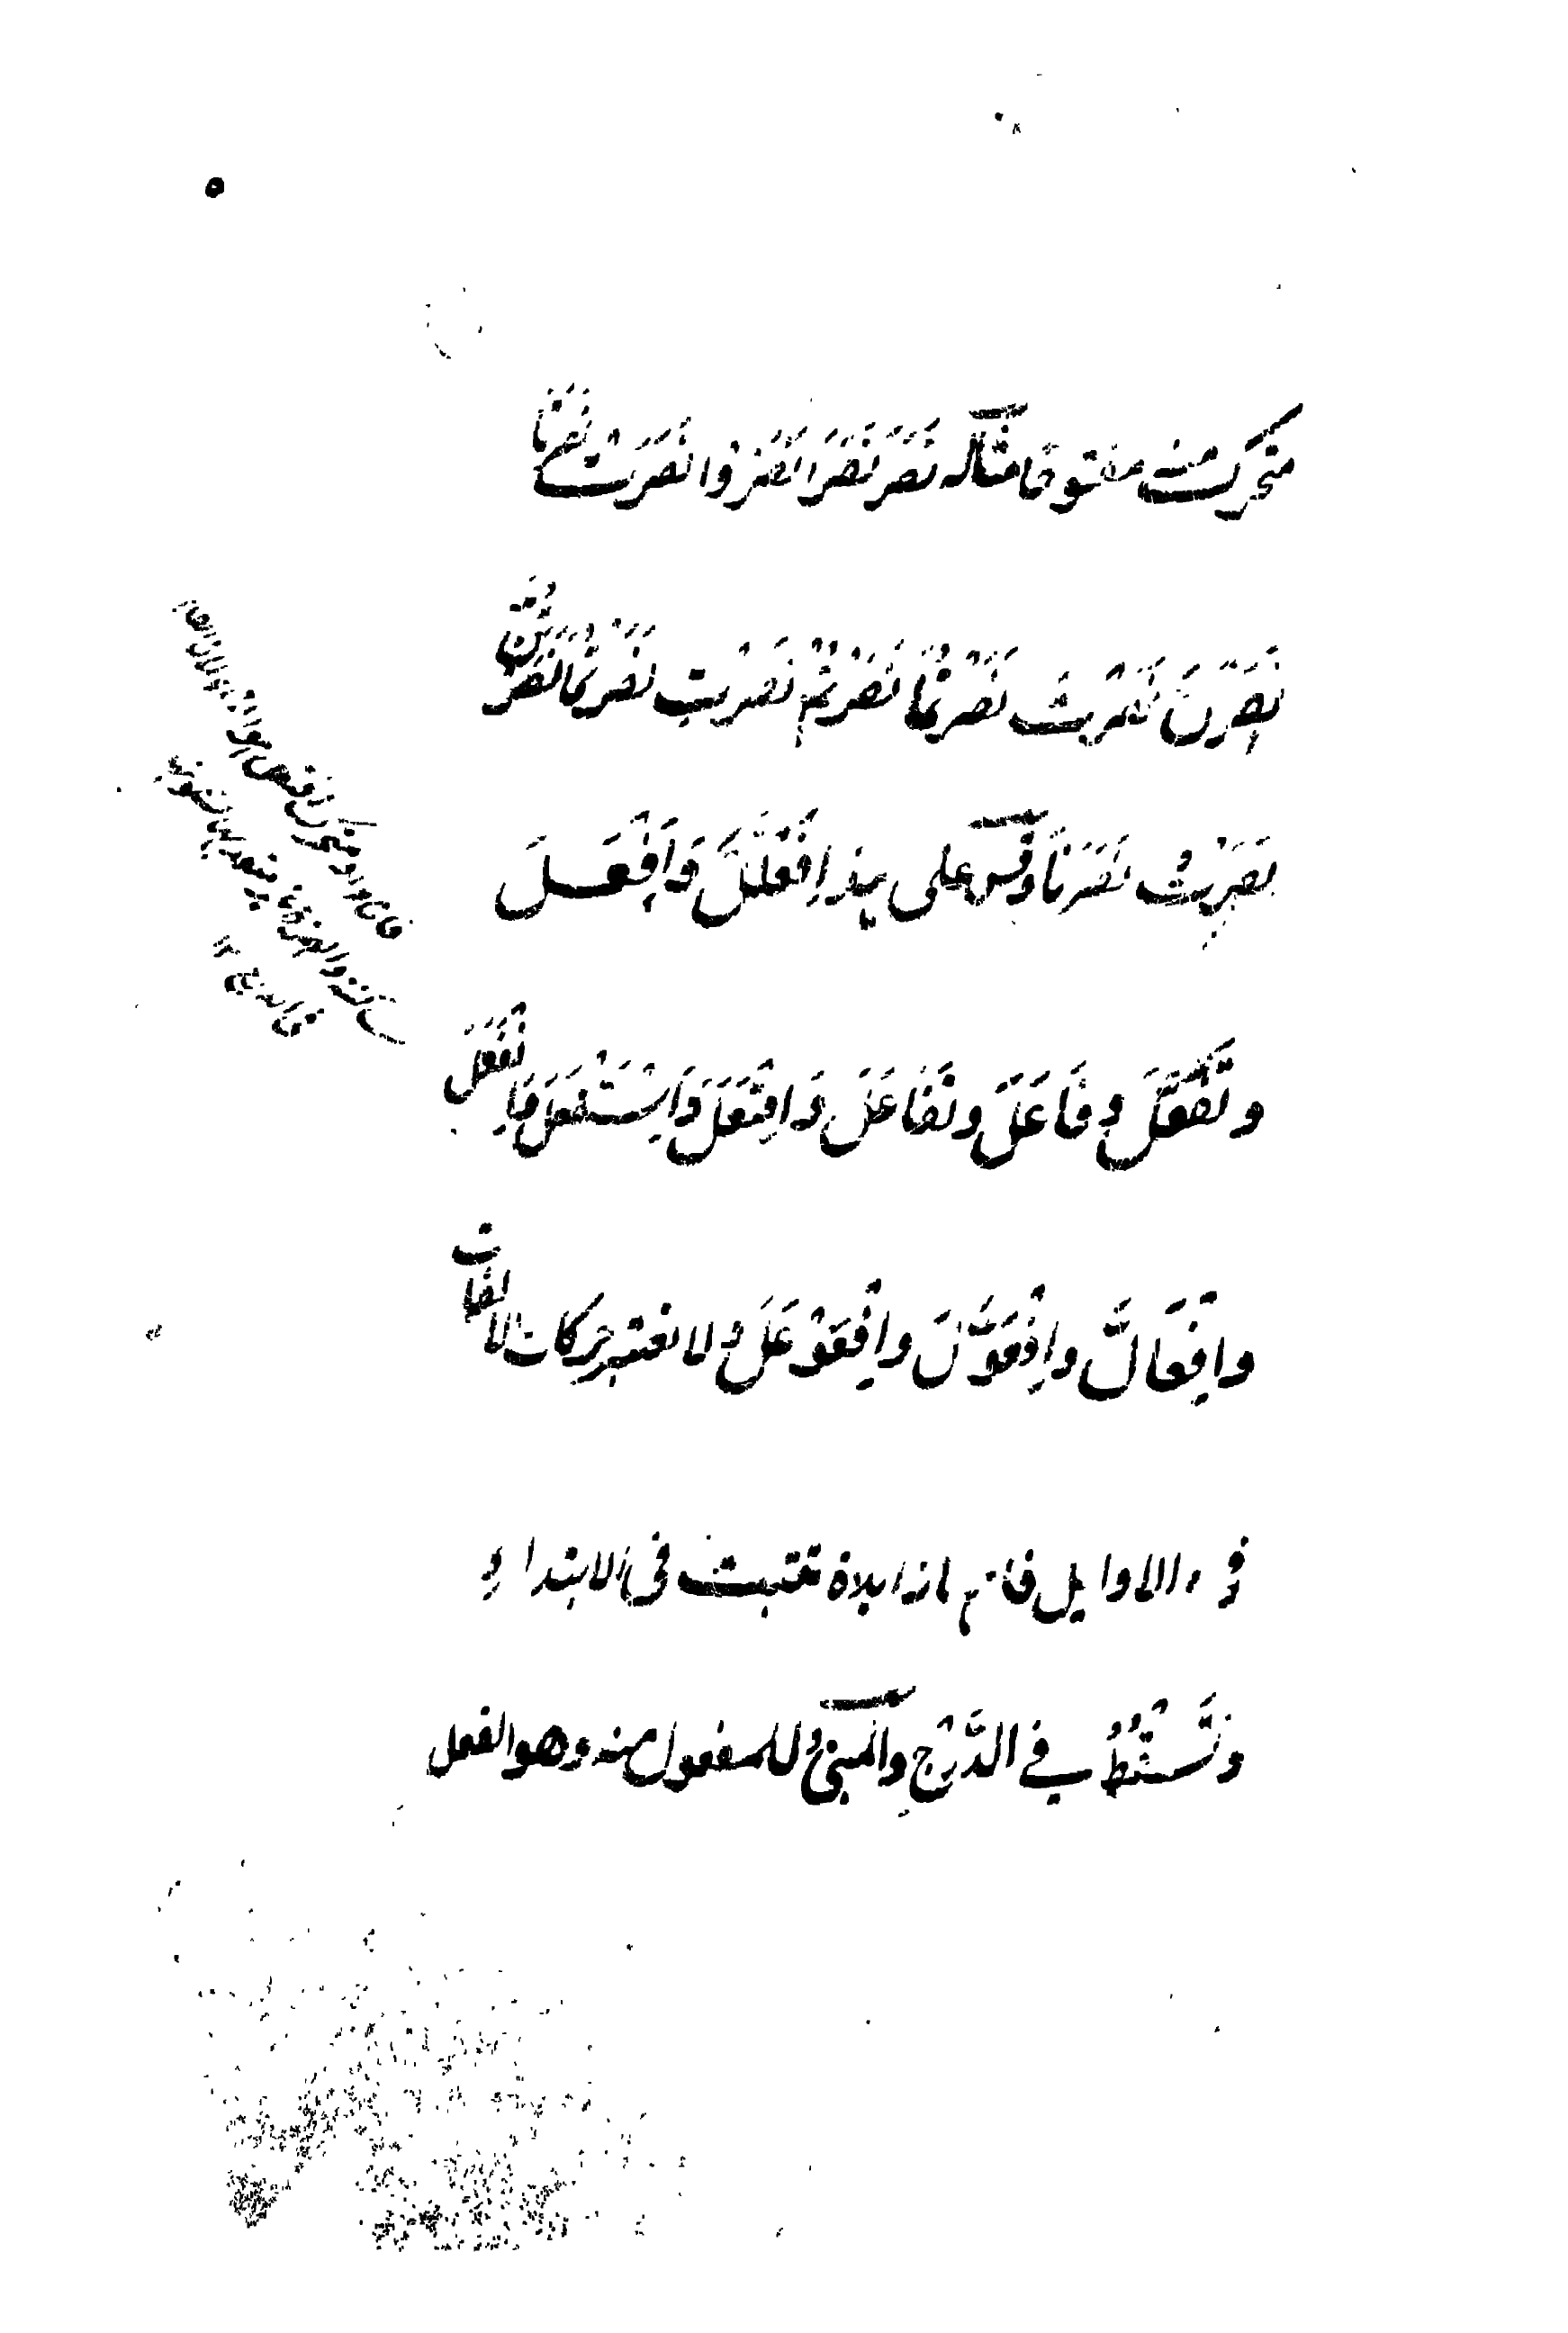 ٥
متحرك منه مفتوحا مثاله نَصَرَ نَصَرَا نَصَرُوا نَصَرَتْ نَصَرَتَا
نَصَرْنَ نَصَرْتَ نَصَرْتُمَا نَصَرْتُمْ نَصَرْتِ نَصَرْتُمَا نَصَرْتُنَّ
نَصَرْتُ نَصَرْنَا وقس على هذا فَعْلَلَ وَاَفْعَلَ
وتَفَعَّلَ وفَاعَلَ وتَفَاعَلَ وَافْتَعَلَ وَاِسْتَفْعَلَ وَاِنْفَعَلَ
وافْعَالَّ وافْعَوَّلَ وافْعَوْعَلَ ولا تعتبر حركات الالفات
في الاوايل فانها زايدة تثبت في الابتداء
وتَسْقُطُ في الدَّرْجِ والمبنيُّ للمفعول منه وهو الفعل